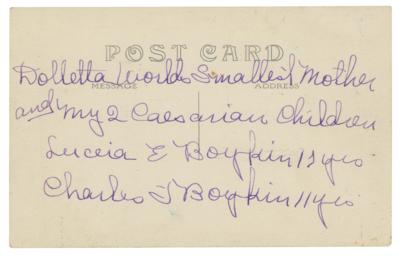 POST CARD
MESSAGE ADDRESS
Dolletta Worlds Smallest Mother
and My 2 Caesarian Children
Luceia E Boykin 13 yrs
Charles J Boykin 11 yrs